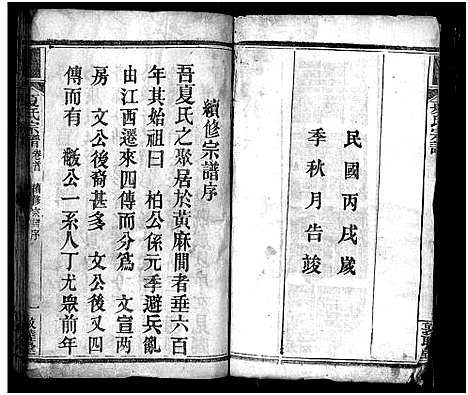 民國丙戌歲
季秋月告竣
續修宗譜序
吾夏氏之聚居於黃麻間者垂六百
年其始祖曰 柏公係元季避兵亂
由江西遷來四傳而分為 文宣兩
房 文公後裔甚多 文公後又四
傳而有 散公一系人丁尤眾前年
夏氏宗譜 卷首 續修宗譜序 一